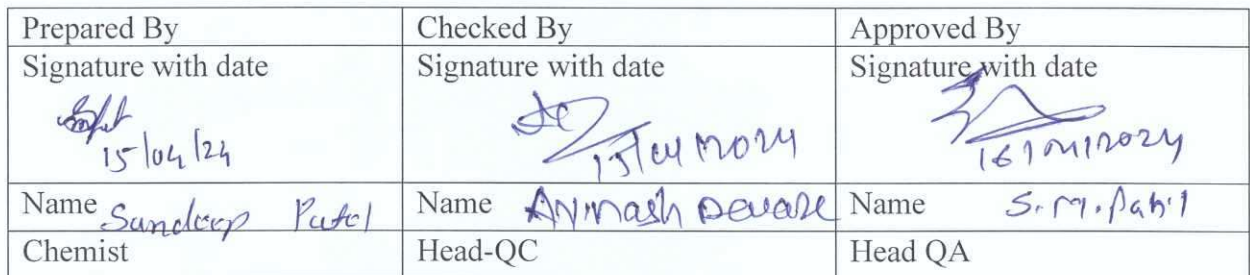 Prepared By Checked By Approved By
Signature with date Signature with date Signature with date
15/04/24 15/04/2024 16/04/2024
Name Sandeep Patel Name Avinash Deware Name S.M. Patil
Chemist Head-QC Head QA